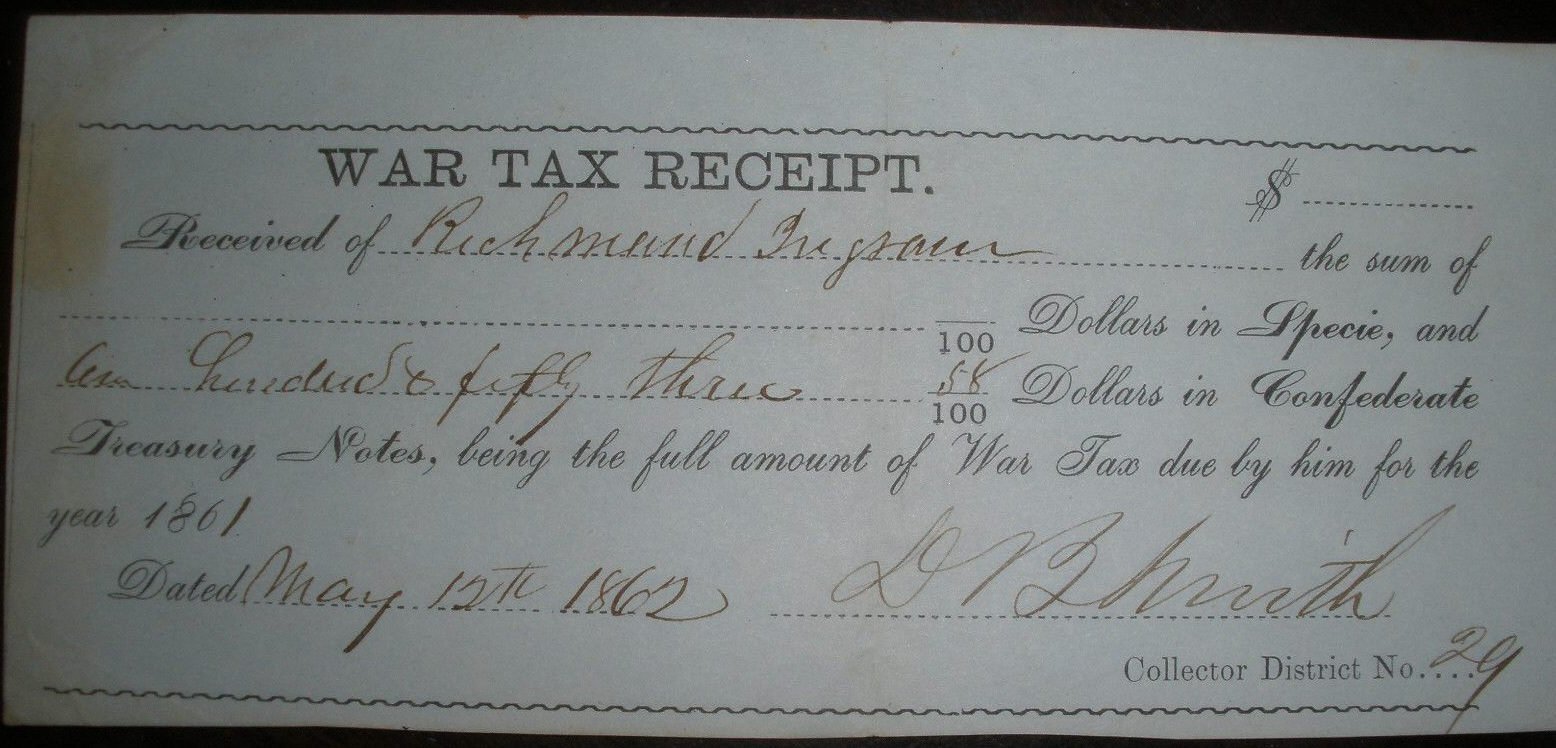 WAR TAX RECEIPT. $
Received of Richmond Ingram the sum of
/100 Dollars in Specie, and
One hundred & fifty three 58/100 Dollars in Confederate
Treasury Notes, being the full amount of War Tax due by him for the
year 1861
Dated May 12th 1862 D B Smith
Collector District No. 29